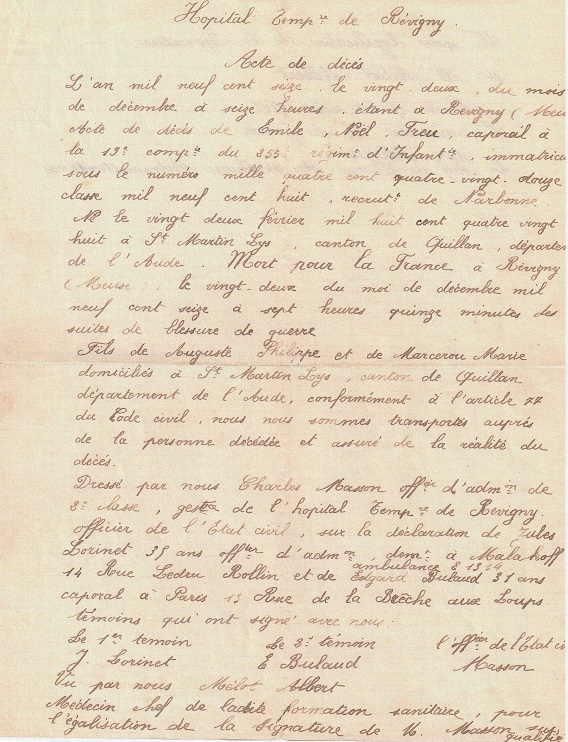 Hopital Temp.re de Révigny.
Acte de décés
L'an mil neuf cent seize le vingt deux, du mois
de décembre à seize heures, étant à Revigny (Meu
Acte de décès de Emile, Noël, Treu, caporail à
la 13e compie du 355e régimt d'Infantie, immatricu
sous le numéro mille quatre cent quatre-vingt-douze
classe mil neuf cent huit, recrutt de Narbonne.
Né le vingt deux février mil huit cent quatre vingt
huit à St Martin Lys, canton de Quillan, départem
de l'Aude. Mort pour la France à Révigny
(Meuse), le vingt-deux du moi de décembre mil
neuf cent seize à sept heures quinze minutes des
suites de blessure de guerre
Fils de Auguste Philippe et de Marcerou Marie
domiciliés à St Martin Lys, canton de Quillan
département de l'Aude, conformément à l'article 77
du Code civil, nous nous sommes transportés auprés
de la personne décédée et assuré de la réalité du
décés.
Dressé par nous Charles Masson offier d'admon de
2e classe, gestre de l'hopital Tempre de Revigny.
officier de l'Etat civil, sur la déclaration de Jules
Lorinet 35 ans offier d'admon, demt à Malakoff
14 Rue Ledru Rollin et de Edgard Bulaud 31 ans
ambulance E 13 14
caporal à Paris 13 Rue de la Brêche aux Loups.
témoins qui ont signé avec nous.
Le 1er temoin Le 2e témoin l'offier de l'Etat ci
J. Lorinet E Bulaud Masson
Vu par nous Mélot Albert
Médecin chef de ladite formation sanitaire, pour
l'égalisation de la signature de M. Masson, sus
qualifié